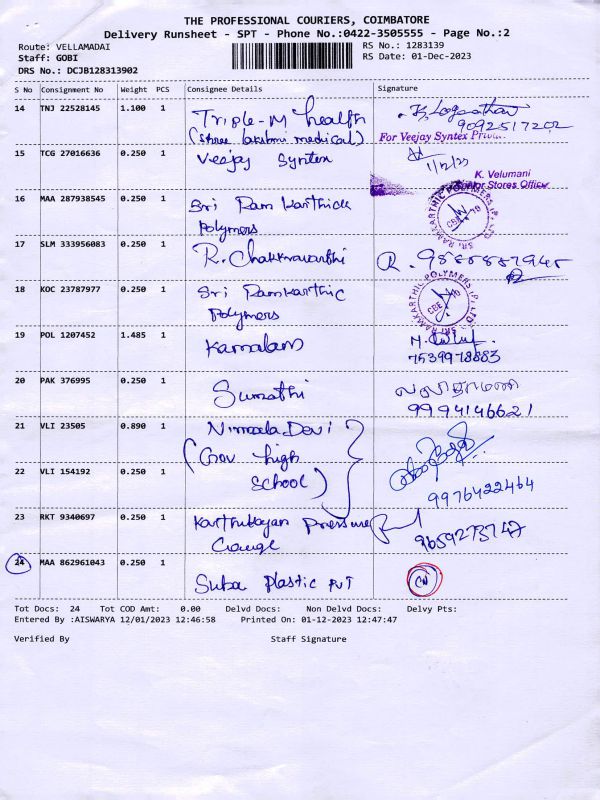 THE PROFESSIONAL COURIERS, COIMBATORE
Delivery Runsheet - SPT - Phone No.:0422-3505555 - Page No.:2
Route: VELLAMADAI RS No.: 1283139
Staff: GOBI RS Date: 01-Dec-2023
DRS No.: DCJB128313902
S No Consignment No Weight PCS Consignee Details Signature
14 TNJ 22528145 1.100 1 Triple-M health
(Shree lakshmi medical) 9092517202
For Veejay Syntex
15 TCG 27016636 0.250 1 Veejay Syntex 1/12/23
K. Velumani
Senior Stores Officer
16 MAA 287938545 0.250 1 Sri Ram Karthick
Polymers
SRI RAMKARTHIC POLYMERS (P) LTD
17 SLM 333956083 0.250 1 R. Chakkravarthi
18 KOC 23787977 0.250 1 Sri Ramkarthic
Polymers
SRI RAMKARTHIC POLYMERS (P) LTD
19 POL 1207452 1.485 1 Kamalam
7539978883
20 PAK 376995 0.250 1 Sumathi
9994146621
21 VLI 23505 0.890 1 Nirmala Devi
(Gov high
22 VLI 154192 0.250 1 School)
9976422464
23 RKT 9340697 0.250 1 Karthikeyan Pressure
Gauge
24 MAA 862961043 0.250 1 Suba Plastic PVT CN
Tot Docs: 24 Tot COD Amt: 0.00 Delvd Docs: Non Delvd Docs: Delvy Pts:
Entered By :AISWARYA 12/01/2023 12:46:58 Printed On: 01-12-2023 12:47:47
Verified By Staff Signature